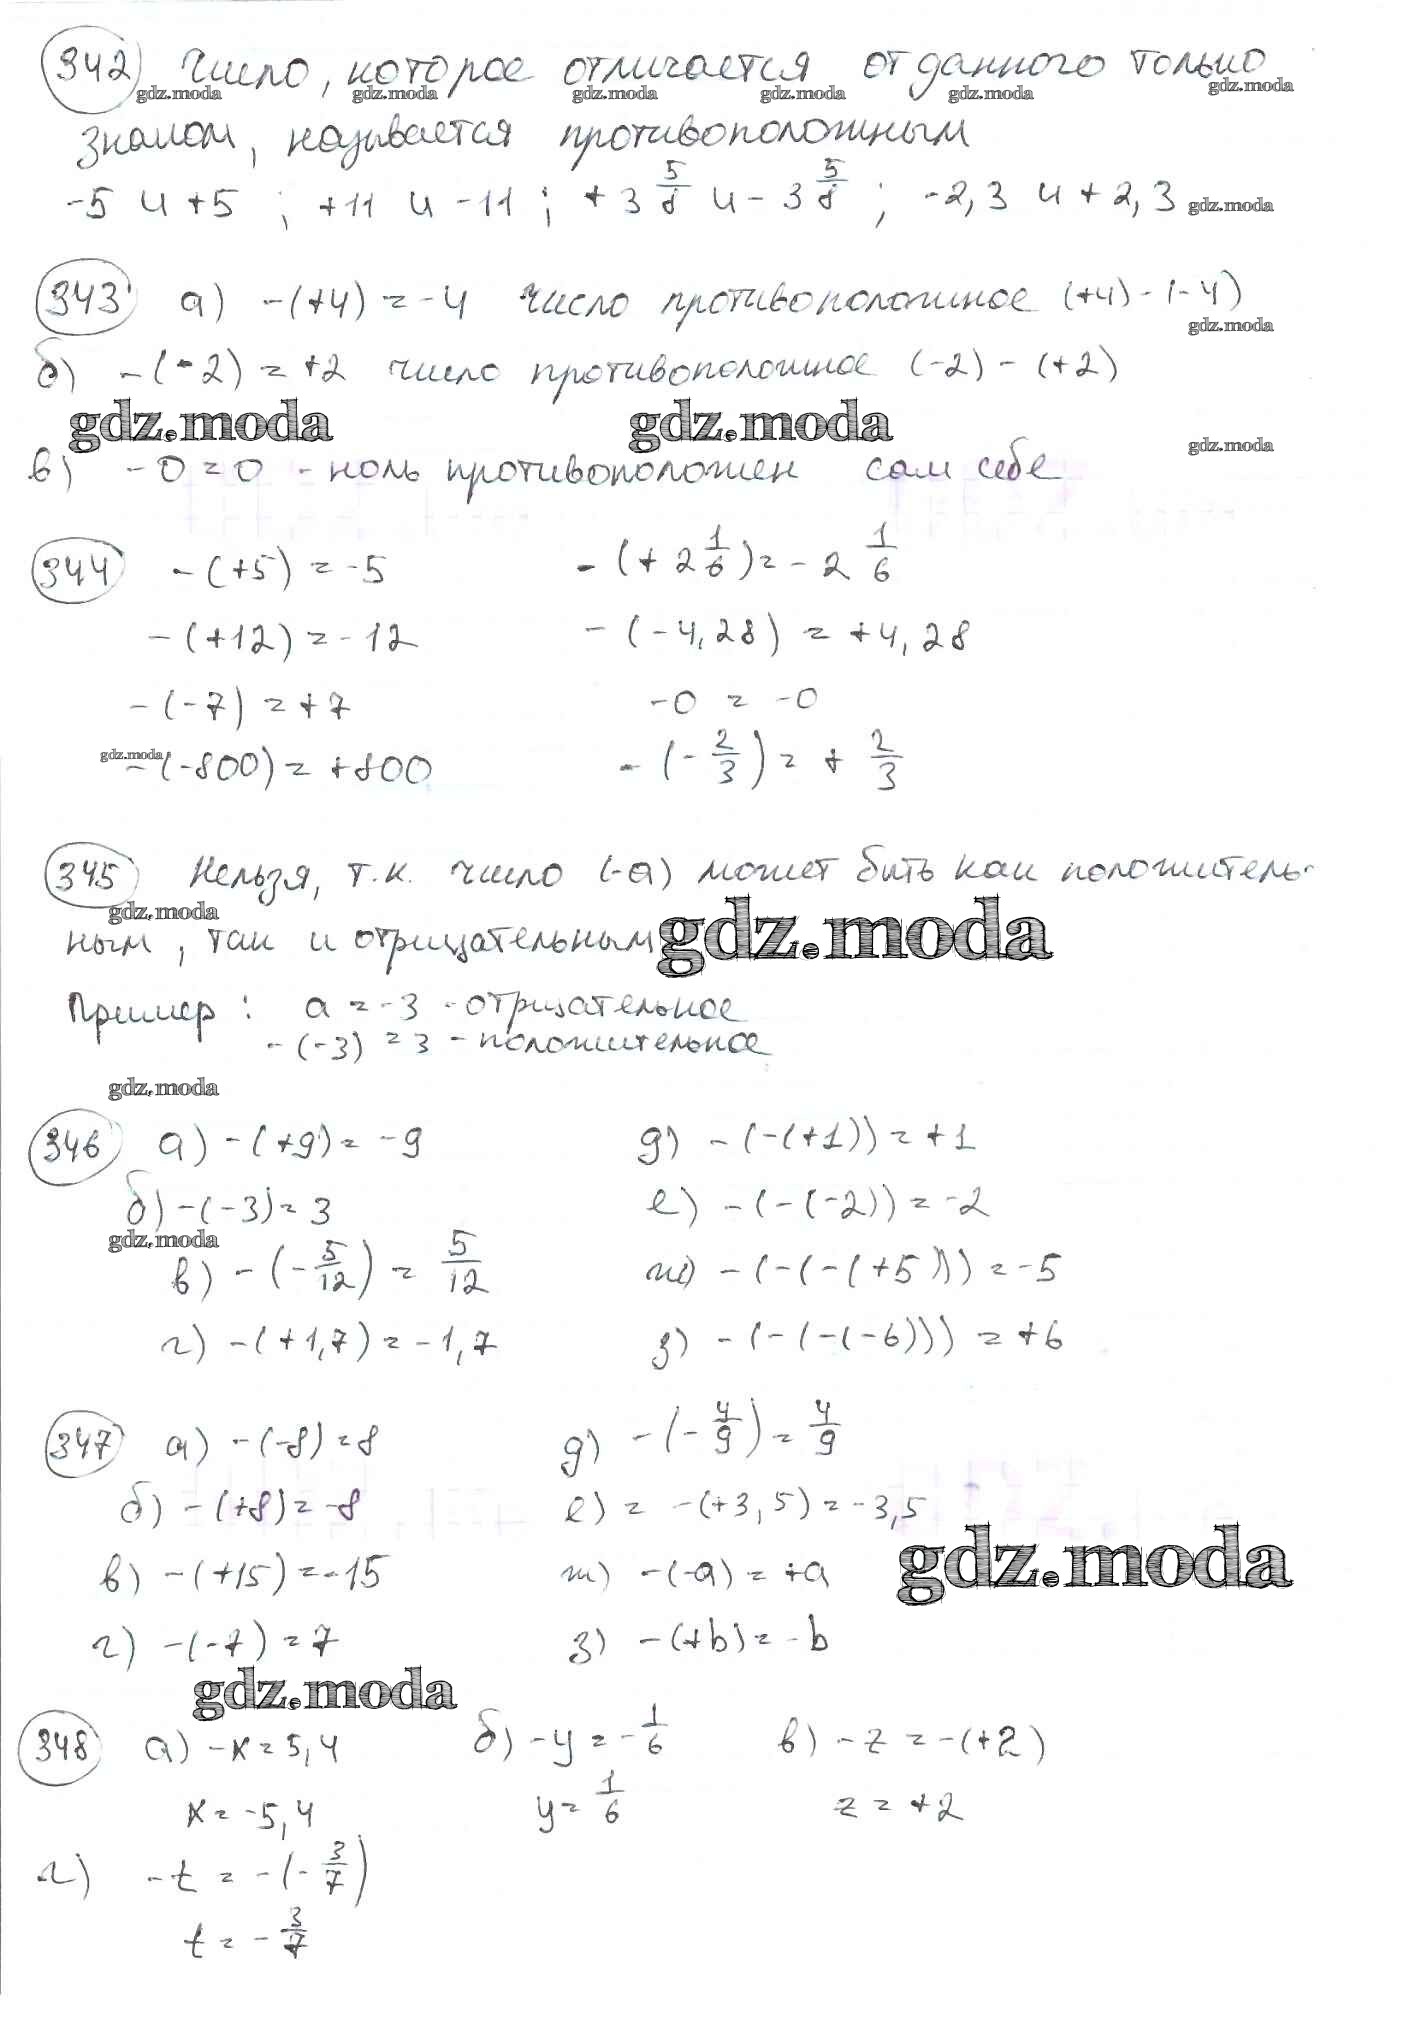 342 Число, которое отличается от данного только
gdz.moda gdz.moda gdz.moda gdz.moda gdz.moda gdz.moda
знаком, называется противоположным
-5 и +5 ; +11 и -11 ; +3 5/8 и -3 5/8 ; -2,3 и +2,3 gdz.moda
343 а) -(+4) = -4 число противоположное (+4) - (-4)
gdz.moda
б) -(-2) = +2 число противоположное (-2) - (+2)
gdz.moda gdz.moda
gdz.moda
в) -0 = 0 - ноль противоположен сам себе
344 -(+5) = -5 -(+2 1/6) = -2 1/6
-(+12) = -12 -(-4,28) = +4,28
-(-7) = +7 -0 = -0
gdz.moda -(-800) = +800 -(-2/3) = +2/3
345 Нельзя, т.к. число (-а) может быть как положитель-
gdz.moda
ным, так и отрицательным gdz.moda
Пример: а = -3 - отрицательное
-(-3) = 3 - положительное
gdz.moda
346 а) -(+9) = -9 д) -(-(+1)) = +1
б) -(-3) = 3 е) -(-(-2)) = -2
gdz.moda
в) -(-5/12) = 5/12 ж) -(-(-(+5))) = -5
г) -(+1,7) = -1,7 з) -(-(-(-6))) = +6
347 а) -(-8) = 8 д) -(-4/9) = 4/9
б) -(+8) = -8 е) = -(+3,5) = -3,5
gdz.moda
в) -(+15) = -15 ж) -(-а) = +а
г) -(-7) = 7 з) -(+b) = -b
gdz.moda
348 а) -x = 5,4 б) -y = -1/6 в) -z = -(+2)
x = -5,4 y = 1/6 z = +2
г) -t = -(-3/7)
t = -3/7